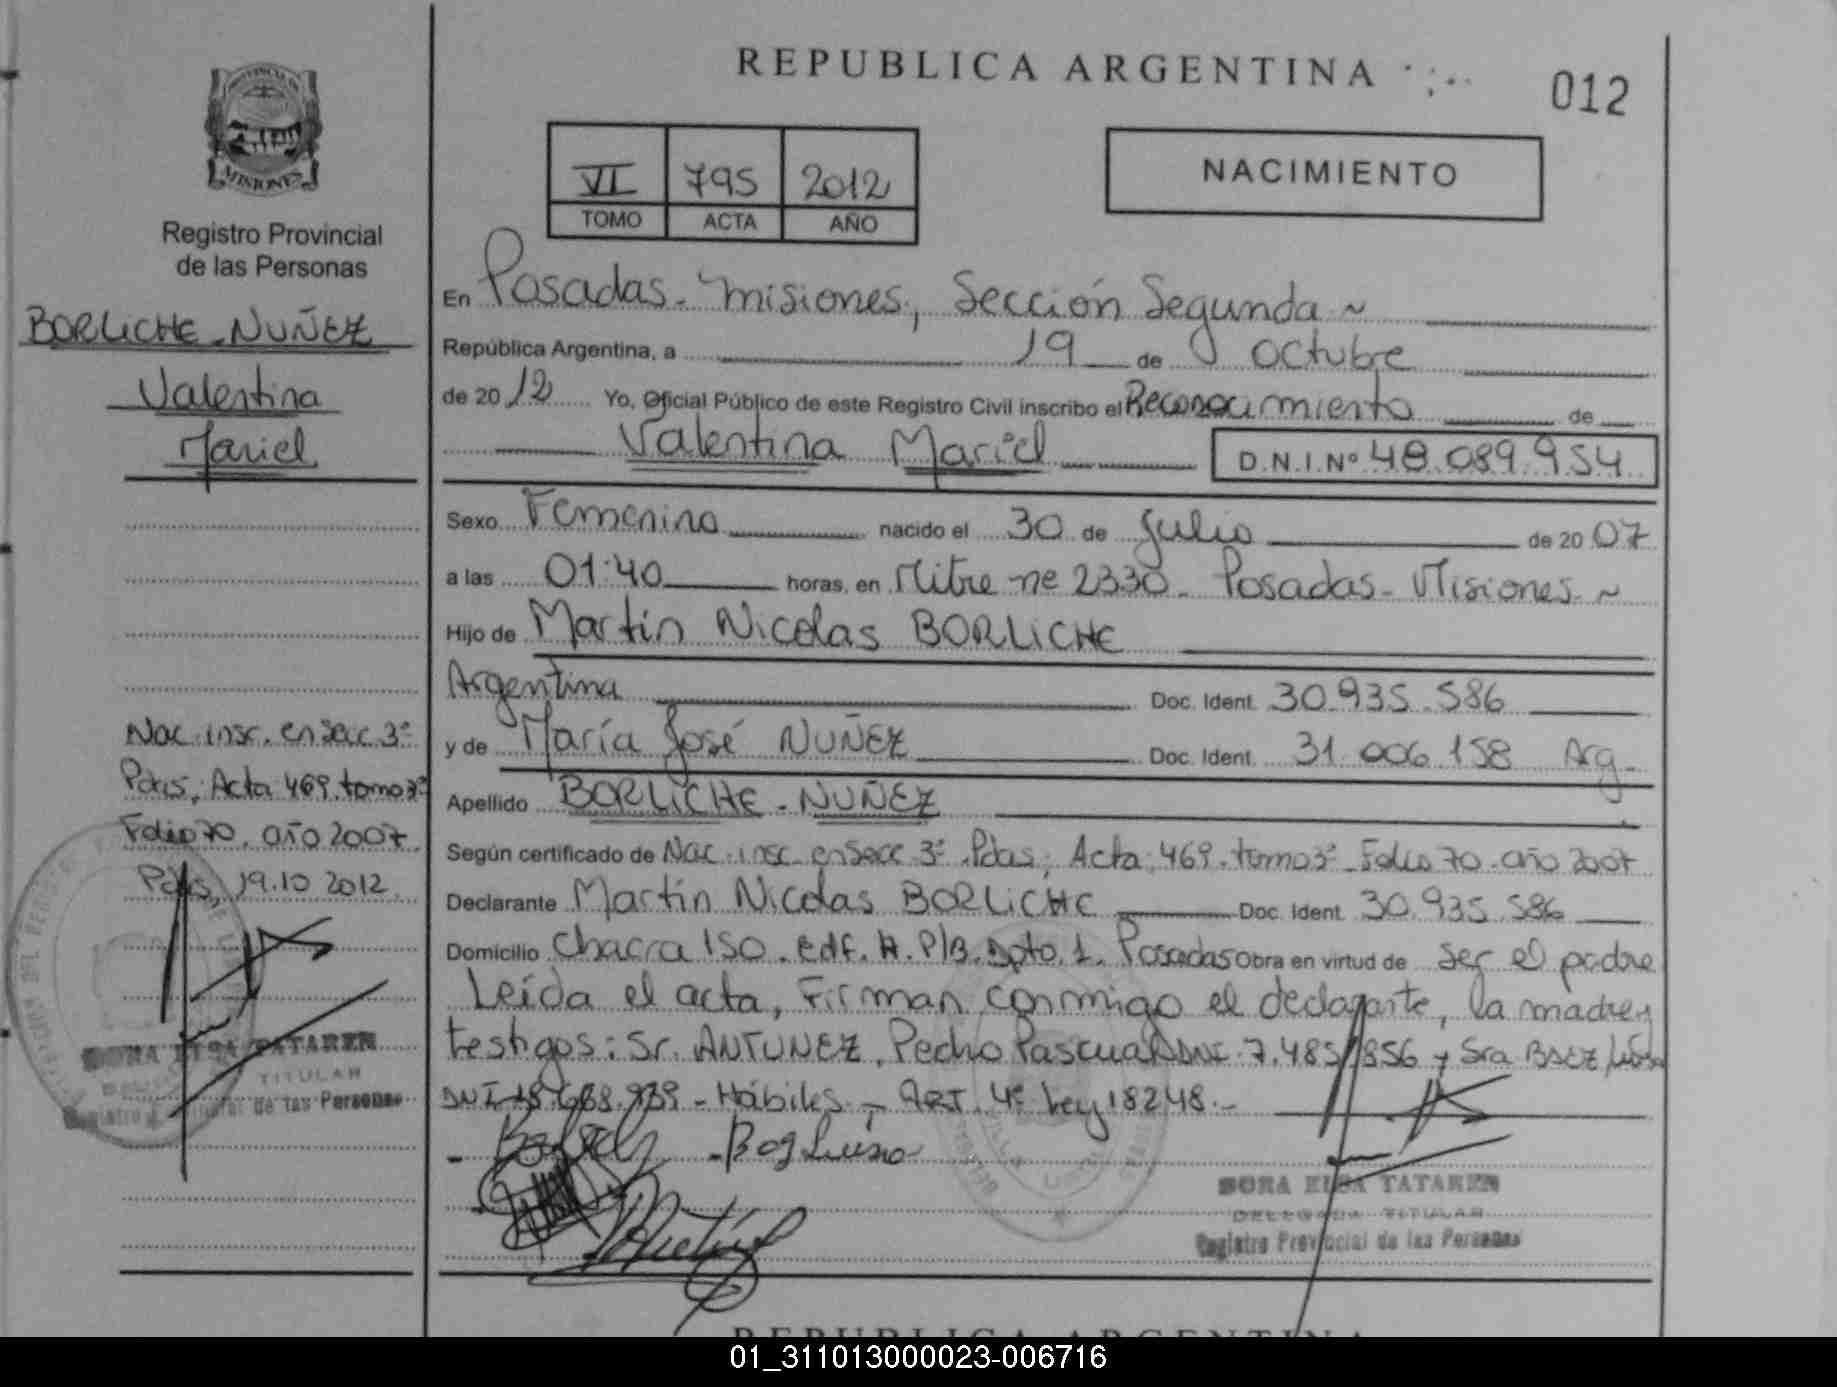 REPUBLICA ARGENTINA
012
VI 795 2012
TOMO ACTA AÑO
NACIMIENTO
PROVINCIA DE
MISIONES
Registro Provincial
de las Personas
BORLICHE-NUÑEZ
Valentina
Mariel
Nac. insc. en Secc 3ª
Pdas, Acta 469. tomo 3º
Folio 70. año 2007.
Pdas, 19.10 2012.
DORA ELSA TATAREN
TITULAR
Registro Provincial de las Personas
En Posadas - Misiones, Sección Segunda ~
República Argentina, a 19 de octubre
de 2012 Yo, Oficial Público de este Registro Civil inscribo el Reconocimiento de
Valentina Mariel D.N.I. Nº 48.089.954
Sexo Femenino nacido el 30 de Julio de 2007
a las 01:40 horas, en Mitre nº 2330 - Posadas - Misiones ~
Hijo de Martín Nicolas BORLICHE
Argentina Doc. Ident. 30.935.586
y de María José NUÑEZ Doc. Ident. 31.006.158 Arg-
Apellido BORLICHE - NUÑEZ
Según certificado de Nac. insc. en Secc 3ª Pdas; Acta 469. tomo 3º - Folio 70. año 2007
Declarante Martín Nicolas BORLICHE Doc. Ident. 30.935.586
Domicilio Chacra 150. Edf. A. P/B. Dpto. 1. Posadas Obra en virtud de ser el padre
Leída el acta, Firman conmigo el declarante, la madre y
testigos: Sr. ANTUNEZ, Pedro Pascual DNI. 7.485.856 y Sra BAEZ
DNI 18.688.939 - Hábiles - ART. 4º Ley 18248.-
DORA ELSA TATAREN
DELEGADA TITULAR
Registro Provincial de las Personas
REPUBLICA ARGENTINA
01_311013000023-006716